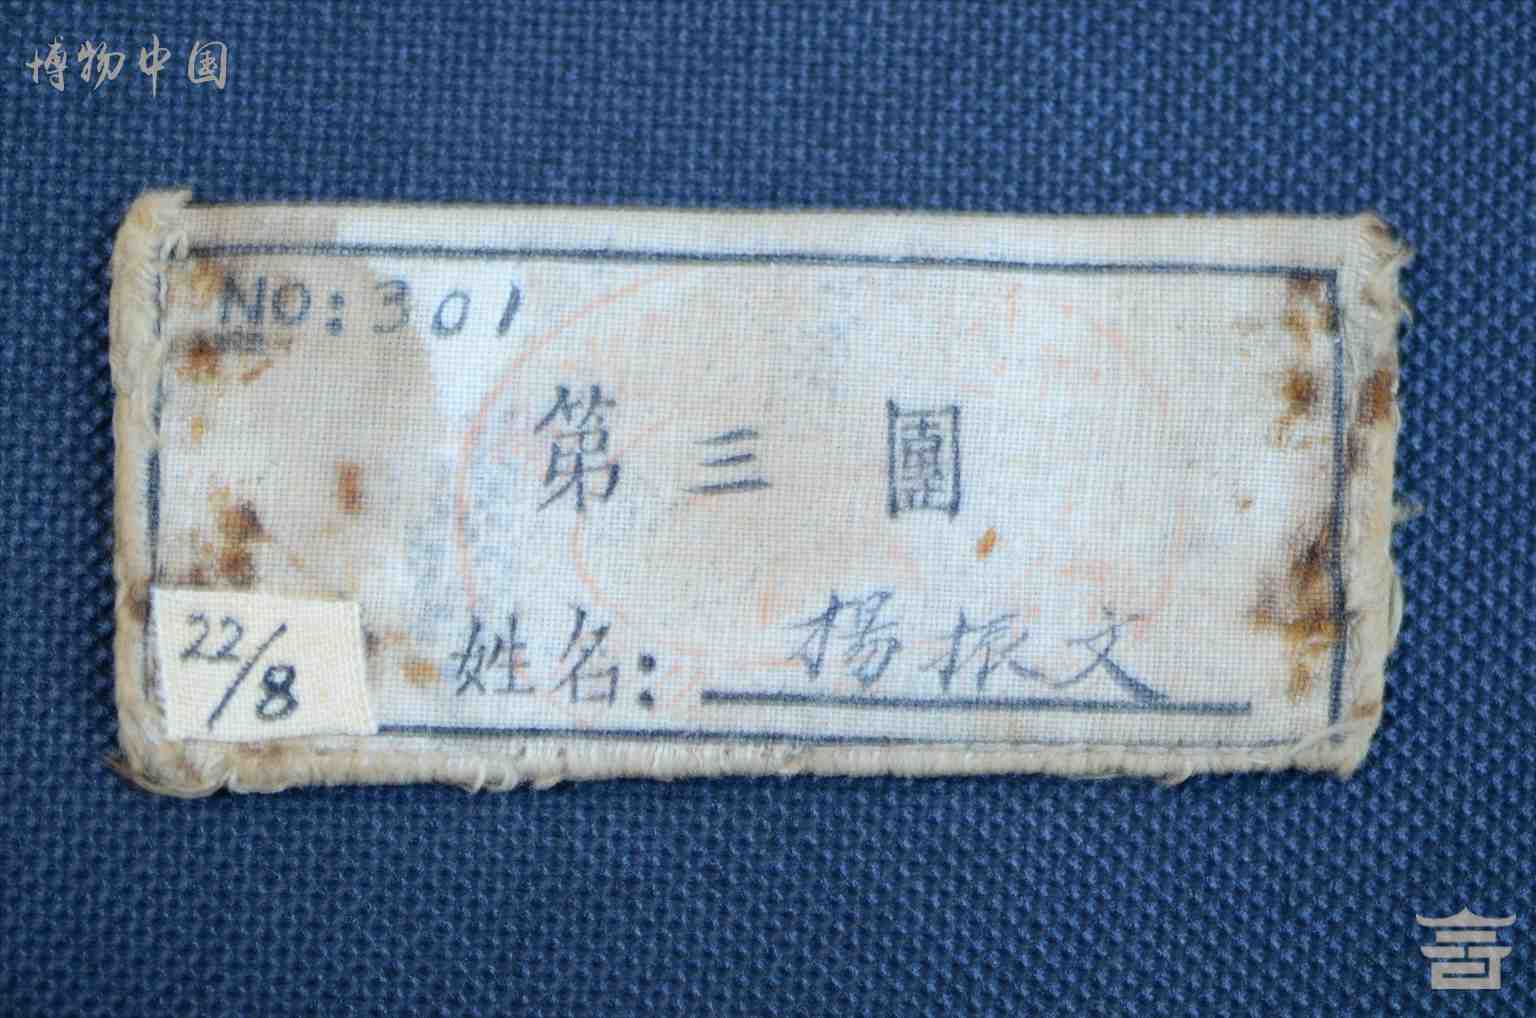 博物中国
NO:301
第三團
姓名: 楊振文
22/8